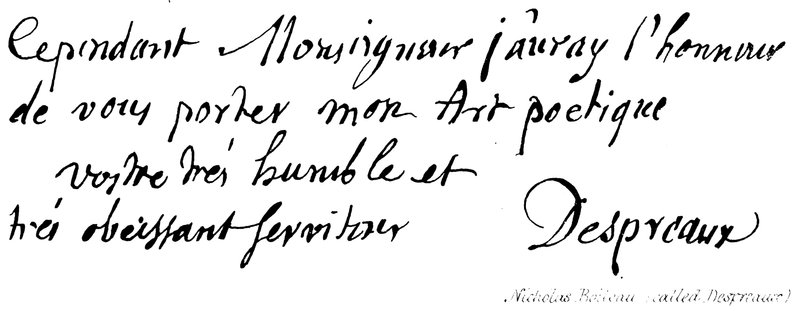 Cependant Monsigneur j'auray l'honneur
de vous porter mon Art poetique
vostre trés humble et
trés obeissant serviteur Despreaux
Nicholas Boileau (called Despreaux)